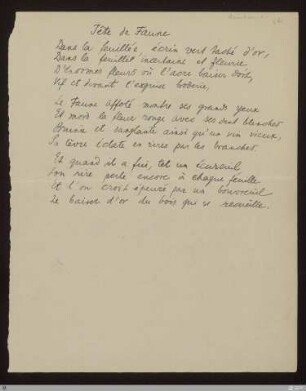 Tête de Faune
Dans la feuillée, écrin vert taché d'or,
Dans la feuillée incertaine et fleurie
D'énormes fleurs où l'âcre baiser dort,
Vif et devant l'exquise broderie,
Le Faune affolé montre ses grands yeux
Et mord la fleur rouge avec ses dents blanches
Brunie et sanglante ainsi qu'un vin vieux,
Sa lèvre éclate en rires par les branches
Et quand il a fui, tel un écureuil
Son rire perle encore à chaque feuille
Et l'on croit épeuré par un bouvreuil
Le baiser d'or du bois qui se recueille.